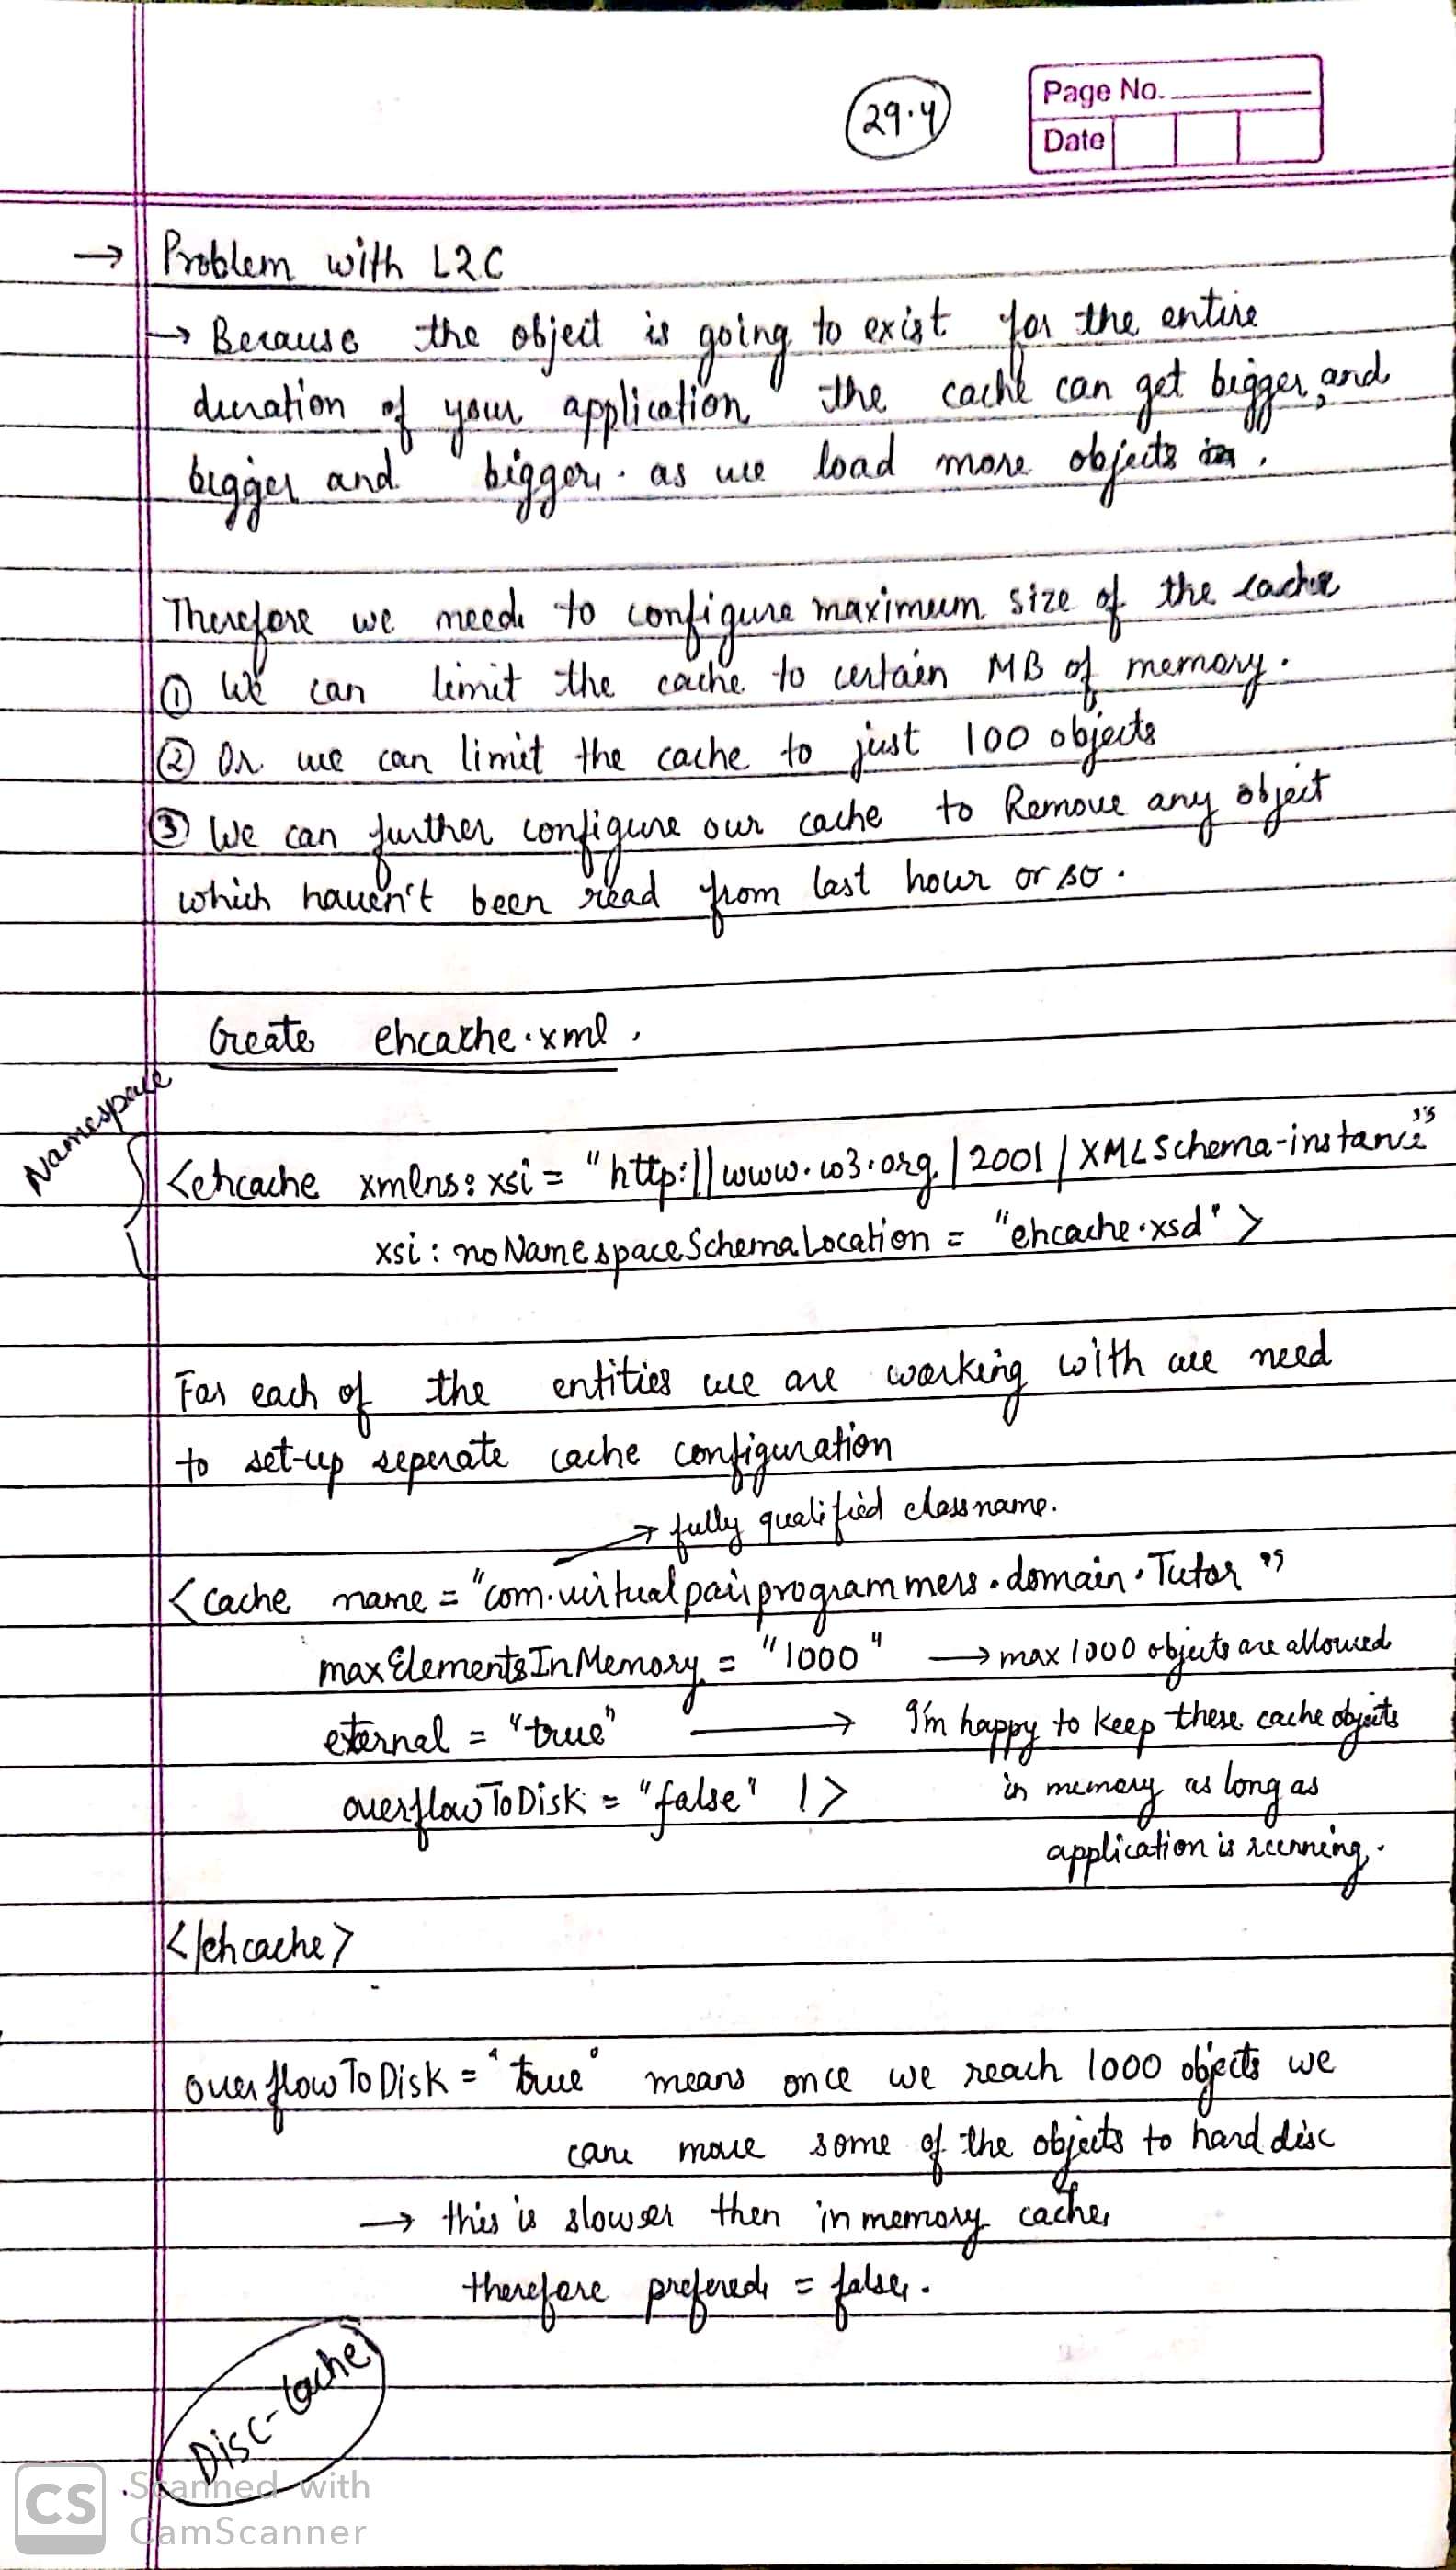 29.4
Page No.
Date
→ Problem with L2C
→ Because the object is going to exist for the entire
duration of your application the cache can get bigger, and
bigger and bigger. as we load more objects in.
Therefore we need to configure maximum size of the cache
① We can limit the cache to certain MB of memory.
② Or we can limit the cache to just 100 objects
③ We can further configure our cache to Remove any object
which haven't been read from last hour or so.
Create ehcache.xml.
Namespace
<ehcache xmlns:xsi = "http://www.w3.org/2001/XMLSchema-instance"
xsi:noNamespaceSchemaLocation = "ehcache.xsd">
For each of the entities we are working with we need
to set-up seperate cache configuration
→ fully qualified classname.
<cache name = "com.virtualpairprogrammers.domain.Tutor"
maxElementsInMemory = "1000" → max 1000 objects are allowed
eternal = "true" → I'm happy to keep these cache objects
overflowToDisk = "false" /> in memory as long as
application is running.
</ehcache>
overflowToDisk = "true" means once we reach 1000 objects we
can move some of the objects to hard disc
→ this is slower then in memory cache,
therefore prefered = false.
Disc-Cache
CS Scanned with
CamScanner